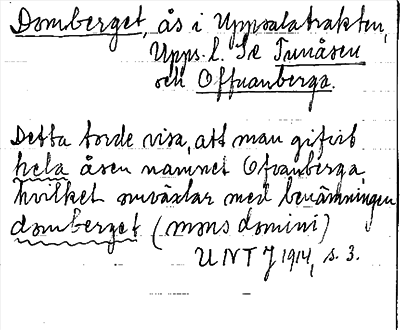 Domberget, ås i Uppsalatrakten,
Upps. l. Se Tunåsen
och Offvanberga.
Detta torde visa, att man gifvit
hela åsen namnet Ofvanberga,
hvilket omväxlar med benämningen
domberget (mons domini)
UNT J 1914, s. 3.